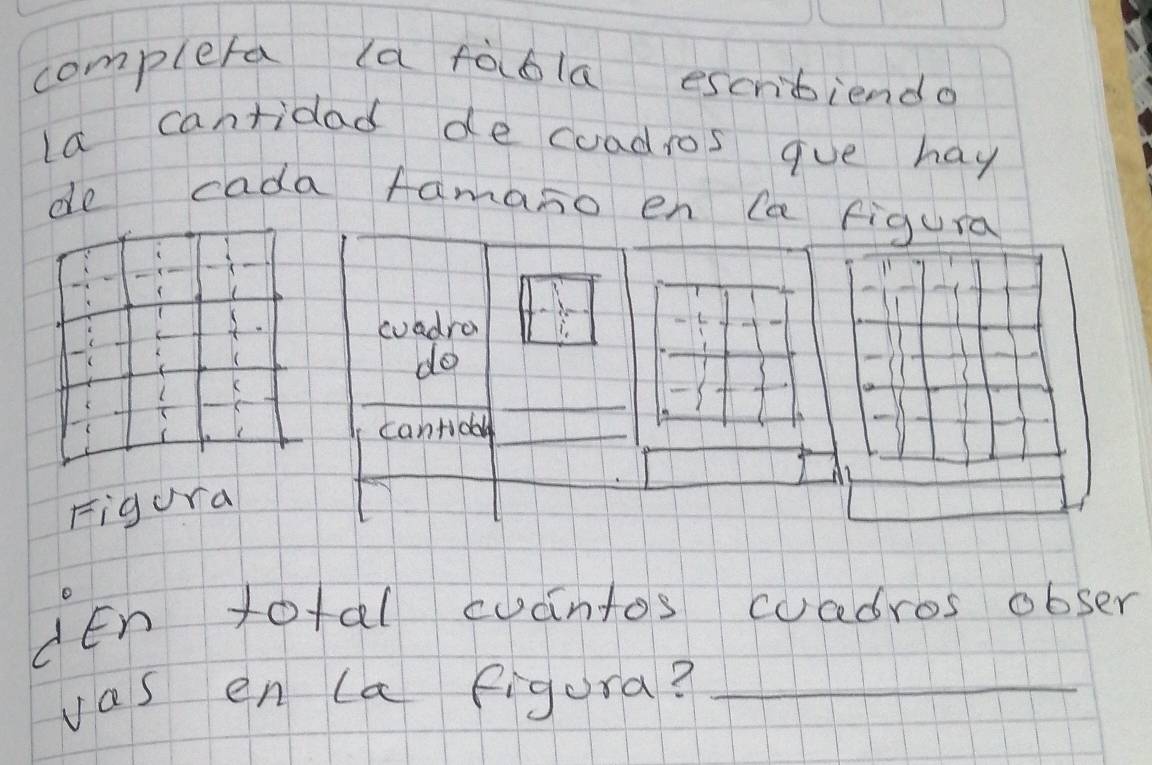 completa la tabla escribiendo
la cantidad de cuadros que hay
de cada tamaño en la figura
cuadra
do
cantidad
Figura
¿En total cuántos cuadros obser
vas en la figura?